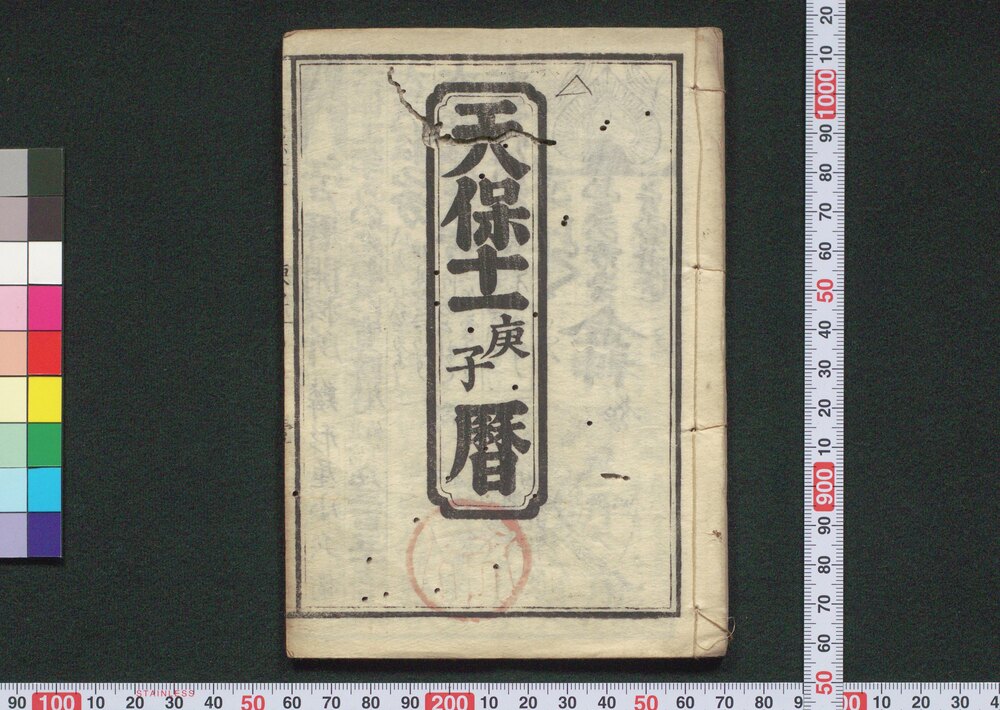 天保十一
庚
子
暦
20
10
1000
90
80
70
60
50
40
30
20
10
900
90
80
70
60
50
90 100 10 20 30 40 50 60 70 80 90 200 10 20 30 40 50 60 70 80 90 00 10 20 30
STAINLESS